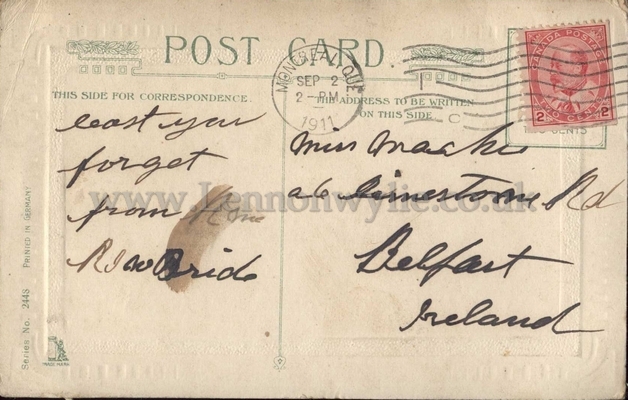 POST CARD
MONTREAL QUE
SEP 2
2-PM
1911
CANADA POSTAGE
2 TWO CENTS 2
CENTS
THIS SIDE FOR CORRESPONDENCE.
THE ADDRESS TO BE WRITTEN
ON THIS SIDE
C
least you
forget
from
Miss
Limestone Rd
Belfast
Ireland
www.Lennonwylie.co.uk
Series No. 2448 PRINTED IN GERMANY
TRADE MARK